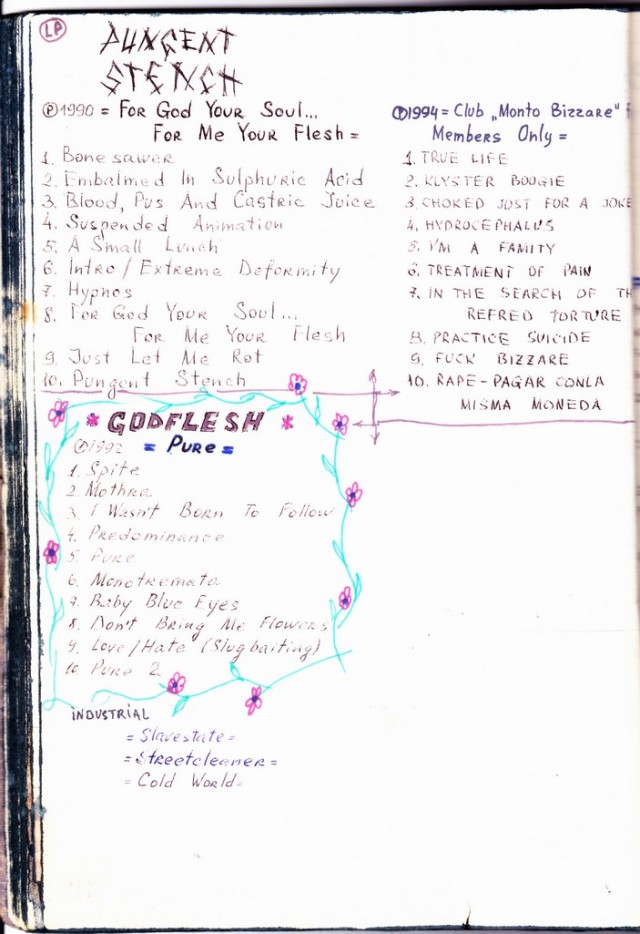 LP
PUNGENT
STENCH
Ⓟ1990 = For God Your Soul...
For Me Your Flesh =
1. Bonesawer
2. Embalmed In Sulphuric Acid
3. Blood, Pus And Castric Juice
4. Suspended Animation
5. A Small Lunch
6. Intro / Extreme Deformity
7. Hypnos
8. For God Your Soul...
For Me Your Flesh
9. Just Let Me Rot
10. Pungent Stench
Ⓟ1994 = Club „Monto Bizzare"
Members Only =
1. TRUE LIFE
2. KLYSTER BOOGIE
3. CHOKED JUST FOR A JOKE
4. HYDROCEPHALUS
5. I'M A FAMITY
6. TREATMENT OF PAIN
7. IN THE SEARCH OF TH
REFRED TORTURE
8. PRACTICE SUICIDE
9. FUCK BIZZARE
10. RAPE-PAGAR CONLA
MISMA MONEDA
* GODFLESH *
Ⓟ1992 = Pure =
1. Spite
2. Mothra
3. I Wasn't Born To Follow
4. Predominance
5. Pure
6. Monotremata
7. Baby Blue Eyes
8. Don't Bring Me Flowers
9. Love/Hate (Slugbaiting)
10. Pure 2
INDUSTRIAL
= Slavestate =
= Streetcleaner =
= Cold World =